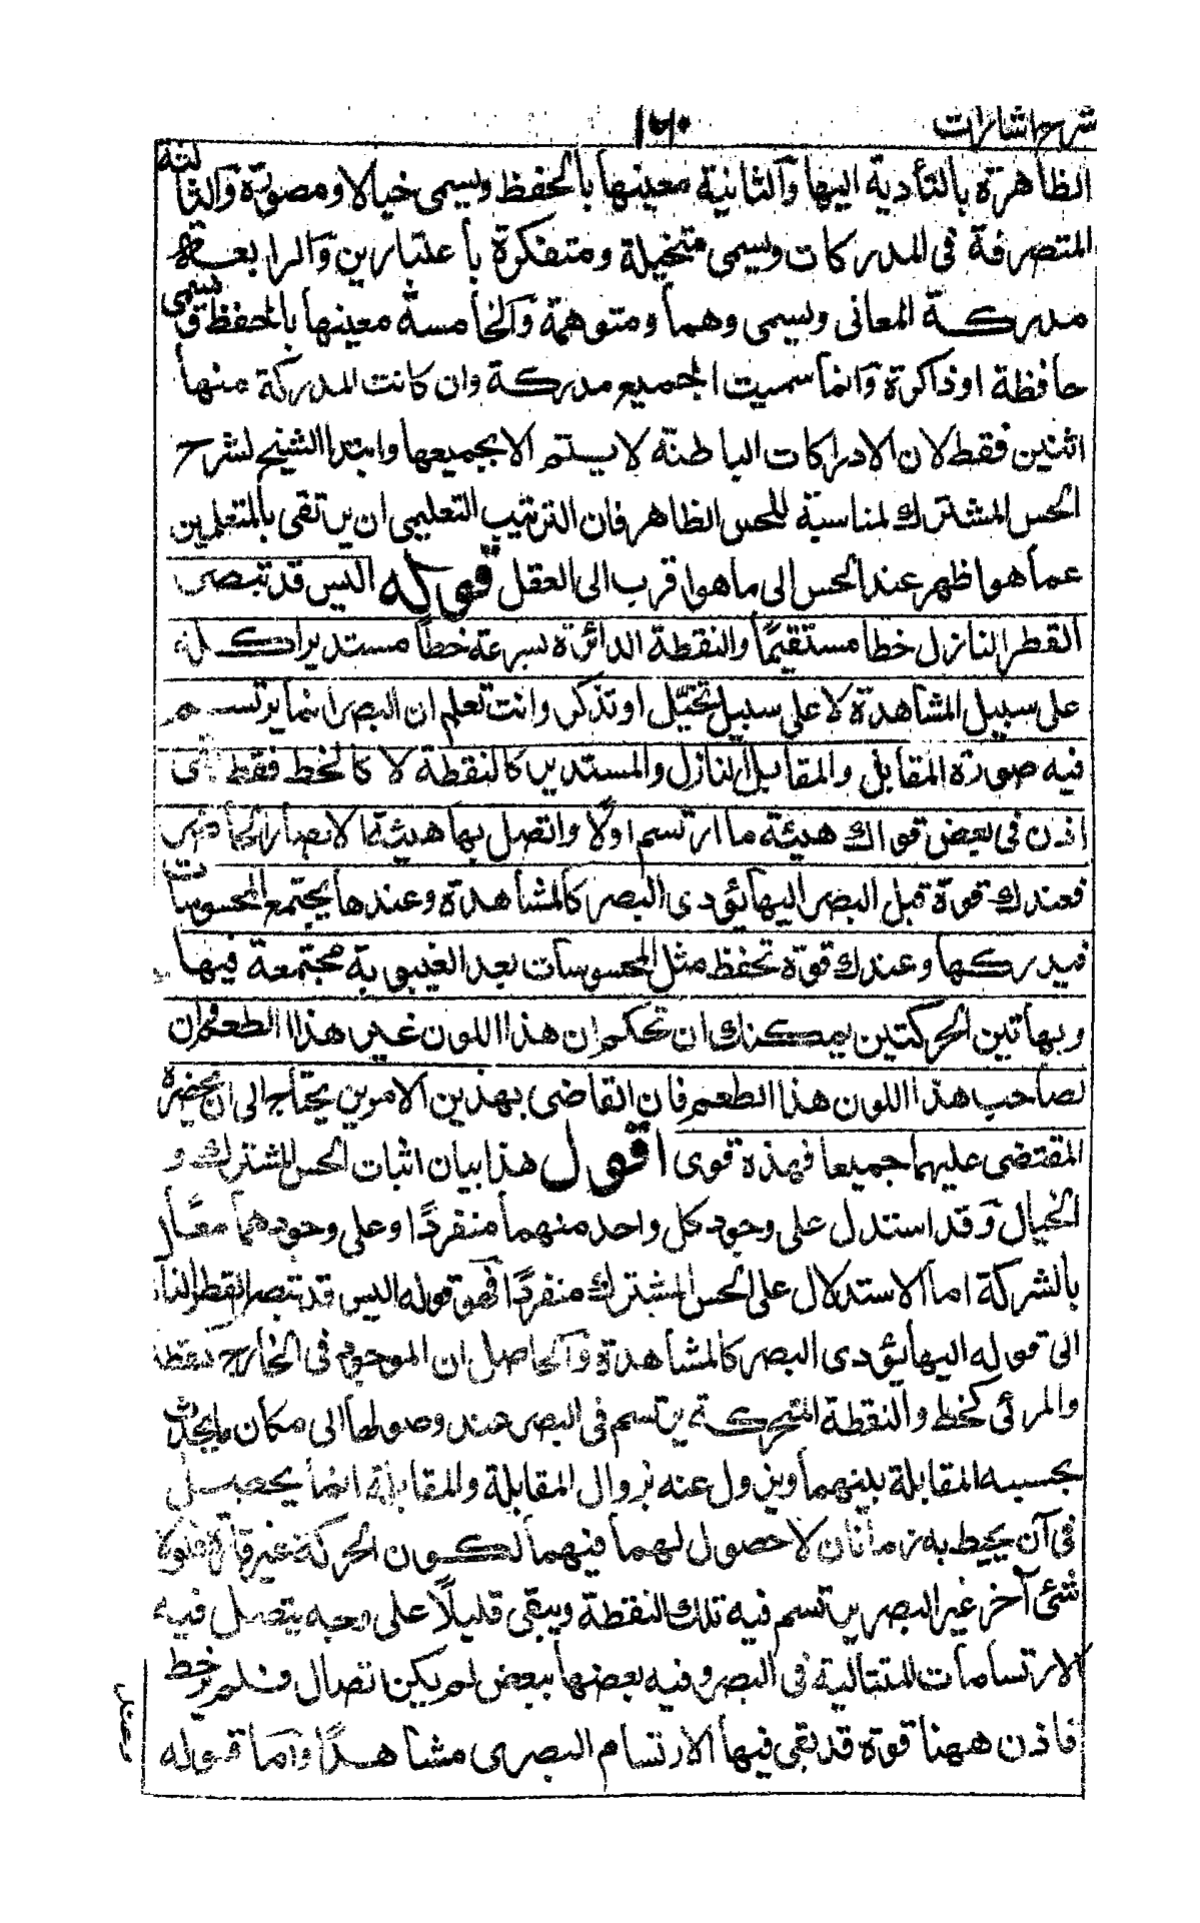 شرح اشارات
١٦٠
الظاهرة بالتأدية اليها والثانية معينها بالحفظ ويسمى خيالا ومصورة والثالثة
المتصرفة فى المدركات ويسمى متخيلة ومتفكرة باعتبارين والرابعة
مدركة المعانى ويسمى وهما ومتوهمة والخامسة معينها بالحفظ وتسمى
حافظة او ذاكرة وانما سميت الجميع مدركة وان كانت المدركة منها
اثنين فقط لان الادراكات الباطنة لا يستم الا بجميعها وابتدا الشيخ لشرح
الحس المشترك لمناسبة للحس الظاهر فان الترتيب التعليمى ان يرتقى بالمتعلمين
عما هو اظهر عند الحس الى ما هو اقرب الى العقل قوله اليس قد تبصر
القطر النازل خطا مستقيمًا والنقطة الدائرة بسرعة خطا مستديرا كله
على سبيل المشاهدة لا على سبيل تخيّل او تذكر وانت تعلم ان البصر انما يرتسم
فيه صورة المقابل والمقابل النازل والمستدير كالنقطة لا كالخط فقط بقى
اذن فى بعض قواك هيئة ما ارتسم اولًا واتصل بها هيئة الابصار الحاضر
فعندك قوة قبل البصر اليها يؤدى البصر كالمشاهدة وعندها يجتمع المحسوسات
فيدركها وعندك قوة تحفظ مثل المحسوسات بعد الغيبوبة مجتمعة فيها
وبهاتين الحركتين يمكنك ان تحكم ان هذا اللون غير هذا الطعم وان
لصاحب هذا اللون هذا الطعم فان القاضى بهذين الامرين يحتاج الى ان يحضره
المقتضى عليهما جميعا فهذه قوى اقول هذا بيان اثبات الحس المشترك و
الخيال وقد استدل على وجود كل واحد منهما منفردًا وعلى وجودهما معًا
بالشركة اما الاستدلال على الحس المشترك منفردًا فهو قوله اليس قد تبصر القطر
الى قوله اليها يؤدى البصر كالمشاهدة والحاصل ان الموجود فى الخارج نقطة
والمرئى كخط والنقطة المتحركة يرتسم فى البصر عند وصولها الى مكان يحدث
بحسبه المقابلة بينهما ويزول عنه بزوال المقابلة والمقابلة انما يحصل
فى آن يحيط به زمانان لا حصول لهما فيهما لكون الحركة غير قارة فلولا
شئ آخر غير البصر يرتسم فيه تلك النقطة ويبقى قليلًا على وجه يتصل فيه
الارتسامات المتتالية فى البصر وفيه بعضها ببعض لم يكن اتصال فلم ير خط
فاذن ههنا قوة قد بقى فيها الارتسام البصرى مشاهدًا واما قوله
وعندك